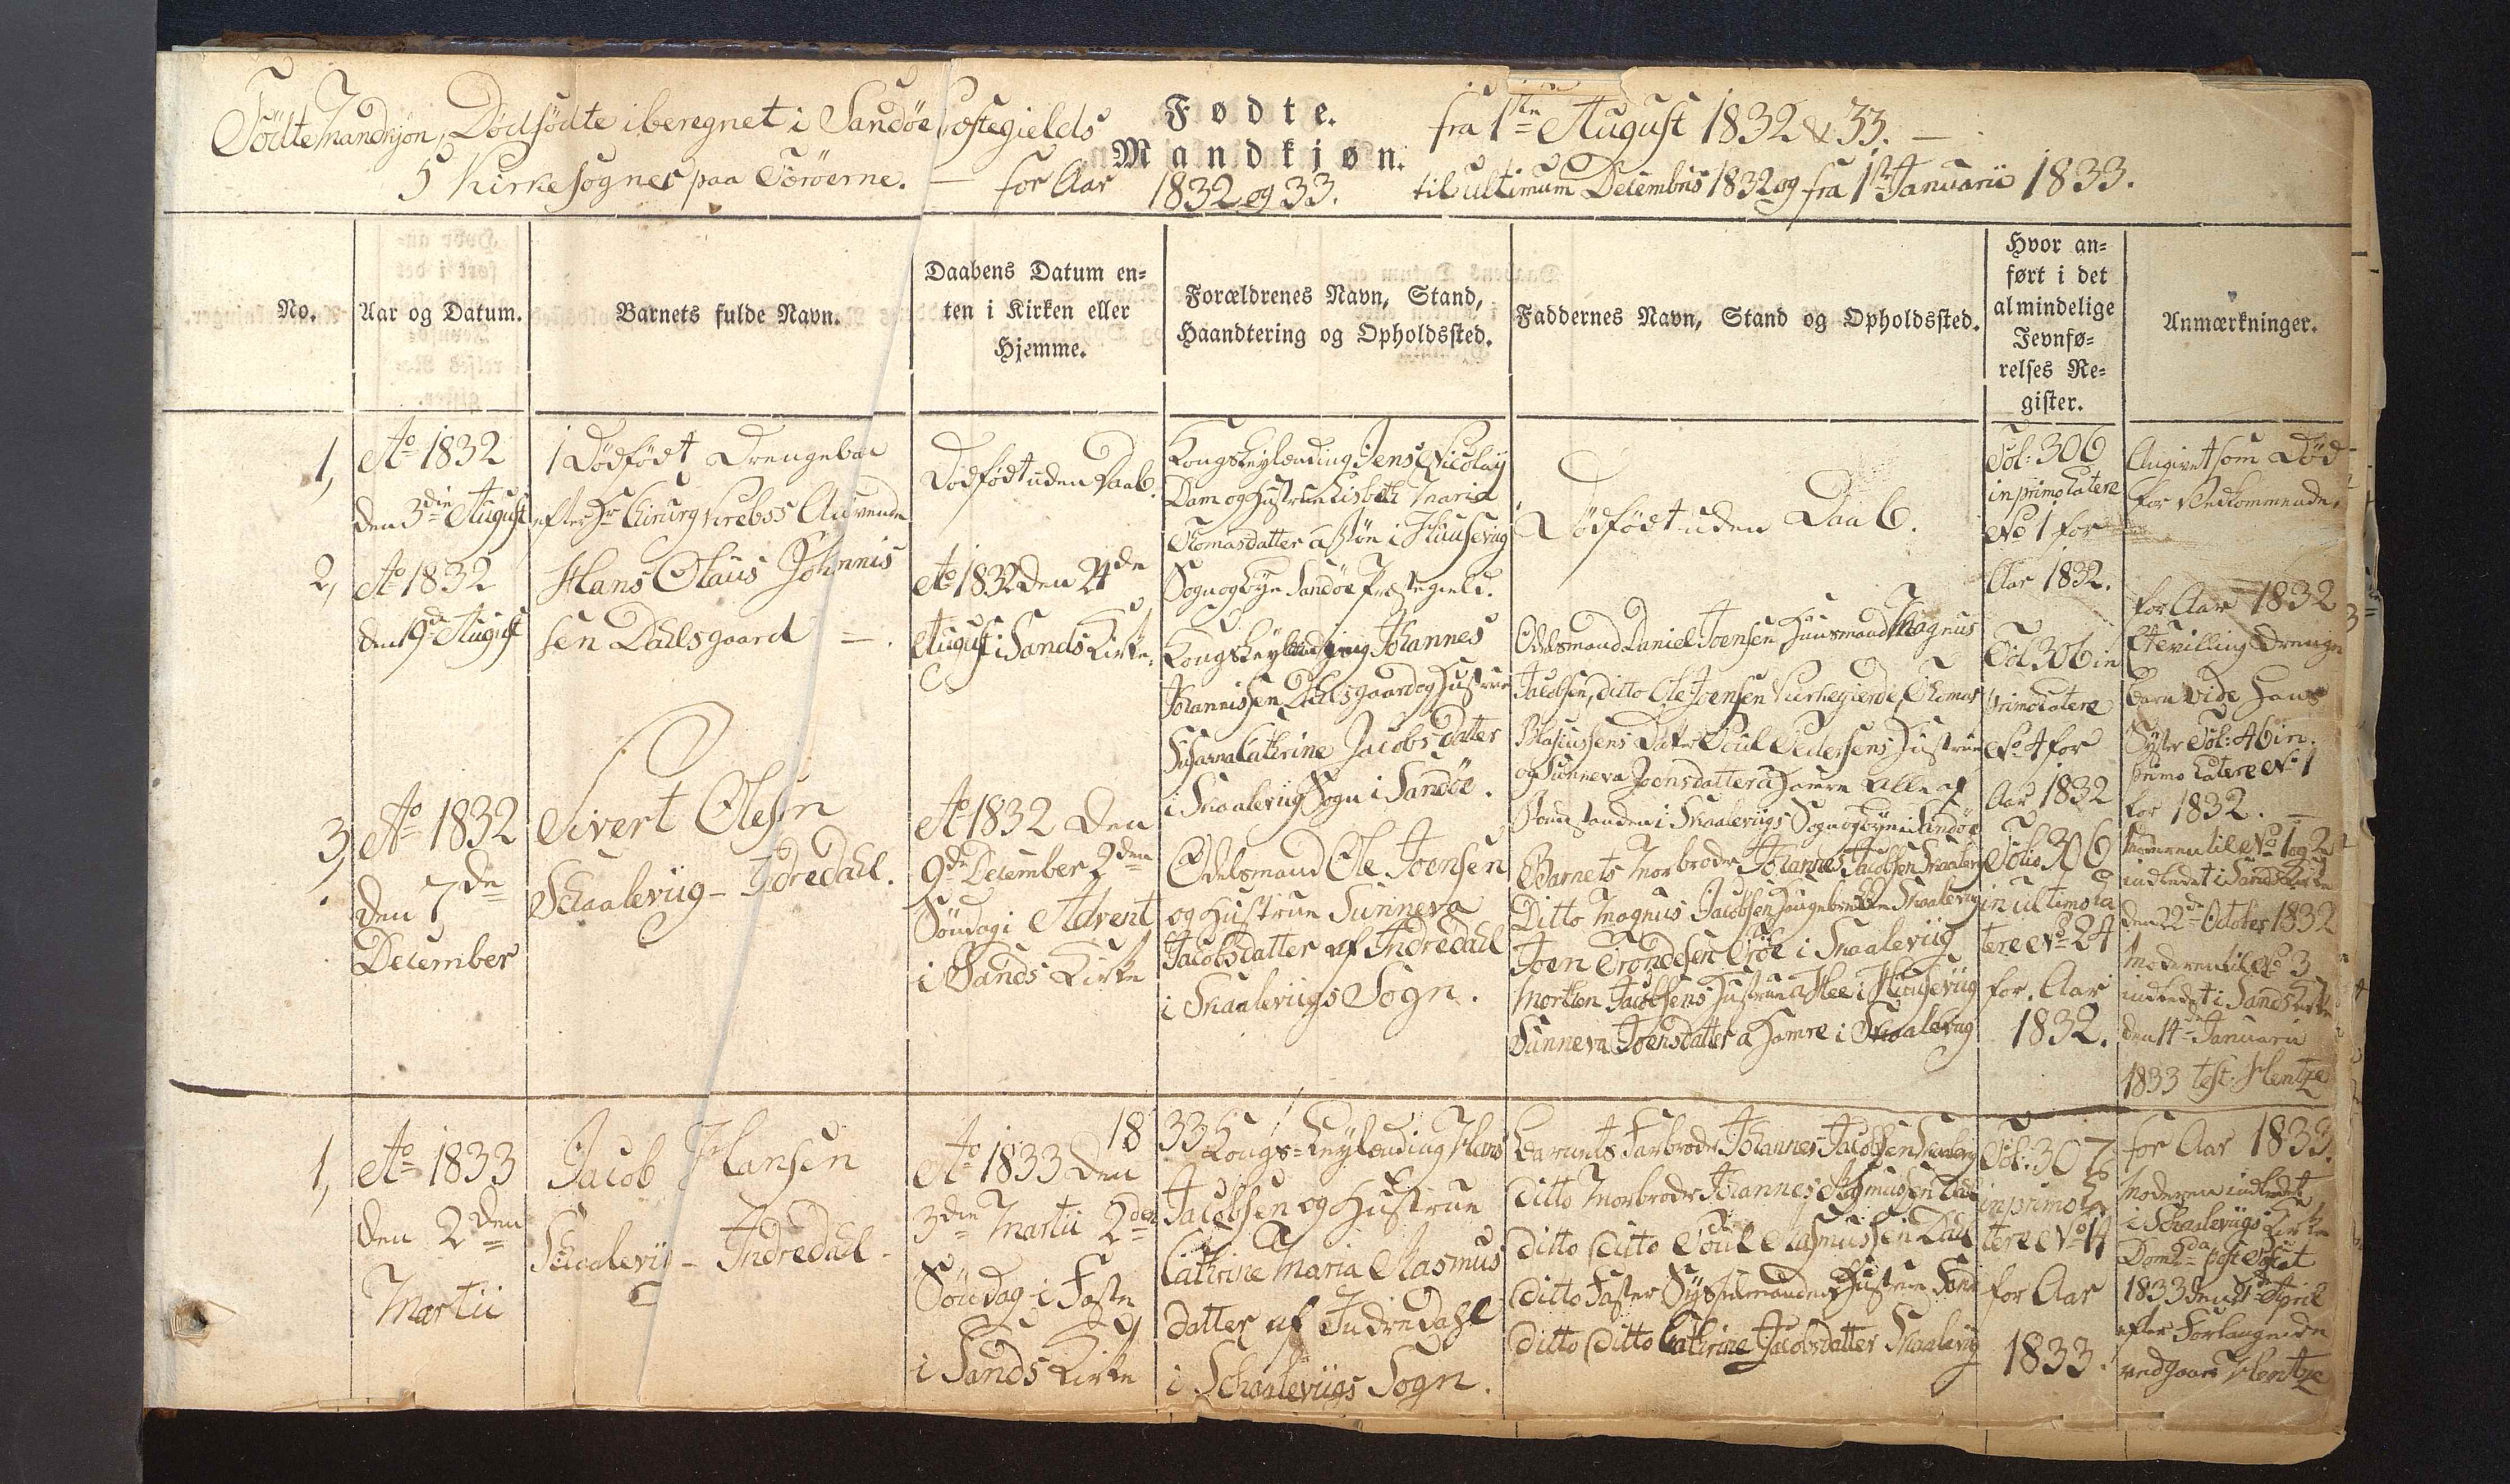 Fødte Mandkjøn, Dødfødte iberegnet i Sandøe Præstegields
5 Kirkesogner paa Færøerne. — for Aar
Fødte.
Mandkjøn.
1832 og 33.
fra 1ste August 1832 & 33. —
til ultimum Decembris 1832 og fra 1ste Januarii 1833.
No.
Aar og Datum.
Barnets fulde Navn.
Daabens Datum en=
ten i Kirken eller
Hjemme.
Forældrenes Navn, Stand,
Haandtering og Opholdssted.
Faddernes Navn, Stand og Opholdssted.
Hvor an=
ført i det
almindelige
Jevnfø=
relses Re=
gister.
Anmærkninger.
1,
Ao 1832
den 3die August
1 Dødfødt Drengebarn
efter Hr Chirurg
Dødfødt uden Daab.
Kongsleylænding Jens Nicolaj
Dam og Hustrue Lisbeth Maria
Thomasdatter i Huusevug
Sogn og Bye Sandøe Præstegield.
Dødfødt uden Daab.
Fol: 306
in primo Latere
No 1 for
Aar 1832.
Angivet som Død
for Vedkommende.
2,
Ao 1832
den 19de August
Hans Olaus Johannis
sen Dahlsgaard —
Ao 1832 den 24de
August i Sands Kirke.
Kongsleylænding Johannes
Johannissen Dahlsgaard og Hustrue
Susanna Cathrine Jacobsdatter
i Skaalevug Sogn i Sandøe.
Odelsmand Daniel Joensen Huusmand Magnus
Jacobsen, ditto Ole Joensen Kirkegierde, Thomas
Poul Pedersens Hustrue
og Sunneva Joensdatter a Hamre Alle af
i Skaalevugs Sogn og Bye i Sandøe
Fol 306 in
primo Latere
No 4 for
Aar 1832
for Aar 1832
Tvilling Drenge
barn vide hans
Syster Fol: 46 in
primo Latere No 1
for 1832. —
3,
Ao 1832
den 7de
December
Sivert Olesen
Schaaleviig - Indredahl.
Ao 1832 den
9de December 2den
Søndag i Advent
i Sands Kirke
Odelsmand Ole Joensen
og Hustrue Sunneva
Jacobsdatter af Indredahl
i Skaaleviigs Sogn.
Barnets Morbroder Johannes Jacobsen Skaalevig
Ditto Magnus Jacobsen Skaalevug
Joen Trondesen Trøe i Skaaleviig
Morthen Jacobsens Hustrue i Huuseviig
Sunneva Joensdatter a Hamre i Skaalevug
Folio 306
in ultimo La
tere No 24
for Aar
1832.
Moderen til No 1 og 2
indledet i Sands Kirke
den 22de October 1832
Moderen til No 3
indledet i Sands Kirke
den 14de Januarii
1833 test: Hentze
1833
1,
Ao 1833
den 2den
Martii
Jacob Hansen
Schaaleviig - Indredahl.
Ao 1833 den
3die Martii 2den
Søndag i Faste
i Sands Kirke
Kongs=Leylænding Hans
Jacobsen og Hustrue
Cathrine Maria Rasmus
datter af Indredahl
i Schaaleviigs Sogn.
Barnets Farbroder Johannes Jacobsen Skaalevig
Ditto Morbroder Johannes Rasmussen Dahl
Ditto Ditto Poul Rasmussen Dahl
Ditto Faster Sysselmandens Hustrue Sand
Ditto Ditto Cathrine Jacobsdatter Skaalevig
Fol: 307
in primo La
tere No 14
for Aar
1833.
for Aar 1833.
Moderen indledet
i Schaaleviigs Kirke
1833 den April
efter Forlangende
vedgaaer Hentze